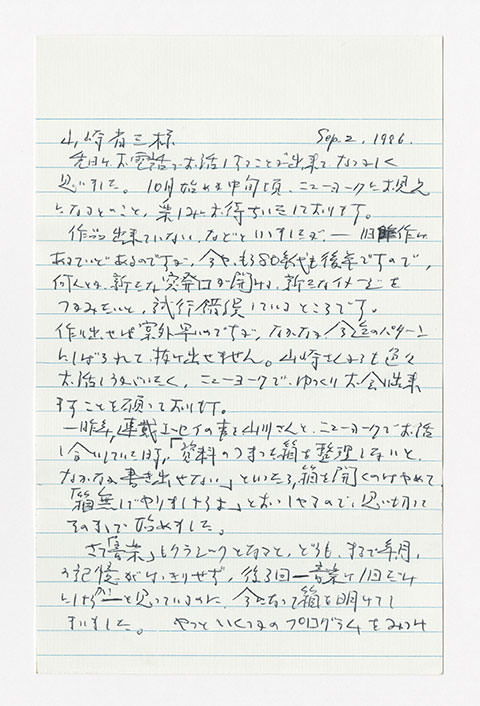 山崎省三様 Sep. 2, 1986.
先日はお電話でお話しすることが出来てなつかしく
思いました。10月始めか中旬頃、ニューヨークにお見え
になるとのこと、楽しみにお待ちいたしております。
作品出来ていない、などといいましたが、— 旧作は
あるていどあるのですが、今や、もう80年代も後半ですので、
何とか、新たな突破口が開ける、新たなイメージを
つかみたいと、試行錯誤しているところです。
作り出せば案外早いのですが、なかなか今迄のパターン
にしばられて、抜け出せません。山崎さんとも色々
お話しうかがいたく、ニューヨークで、ゆっくりお会い出来
ますことを願っております。
一昨年、連載エッセイの事を山川さんと、ニューヨークでお話
し合いしていた時、「資料のつまった箱を整理しないと、
なかなか書き出せない」といったら、箱を開くのはやめて
「箱無しでやりましょうよ」とおっしゃるので、思い切って
そのままで始めました。
さて「音楽」もクラシックとなると、どうも、まるで年月、
の記憶がはっきりせず、後3回一音楽は1回だけ
にしようか—と思っているのに、今になって箱を明けてし
まいました。 やっといくつかのプログラムをみつけ